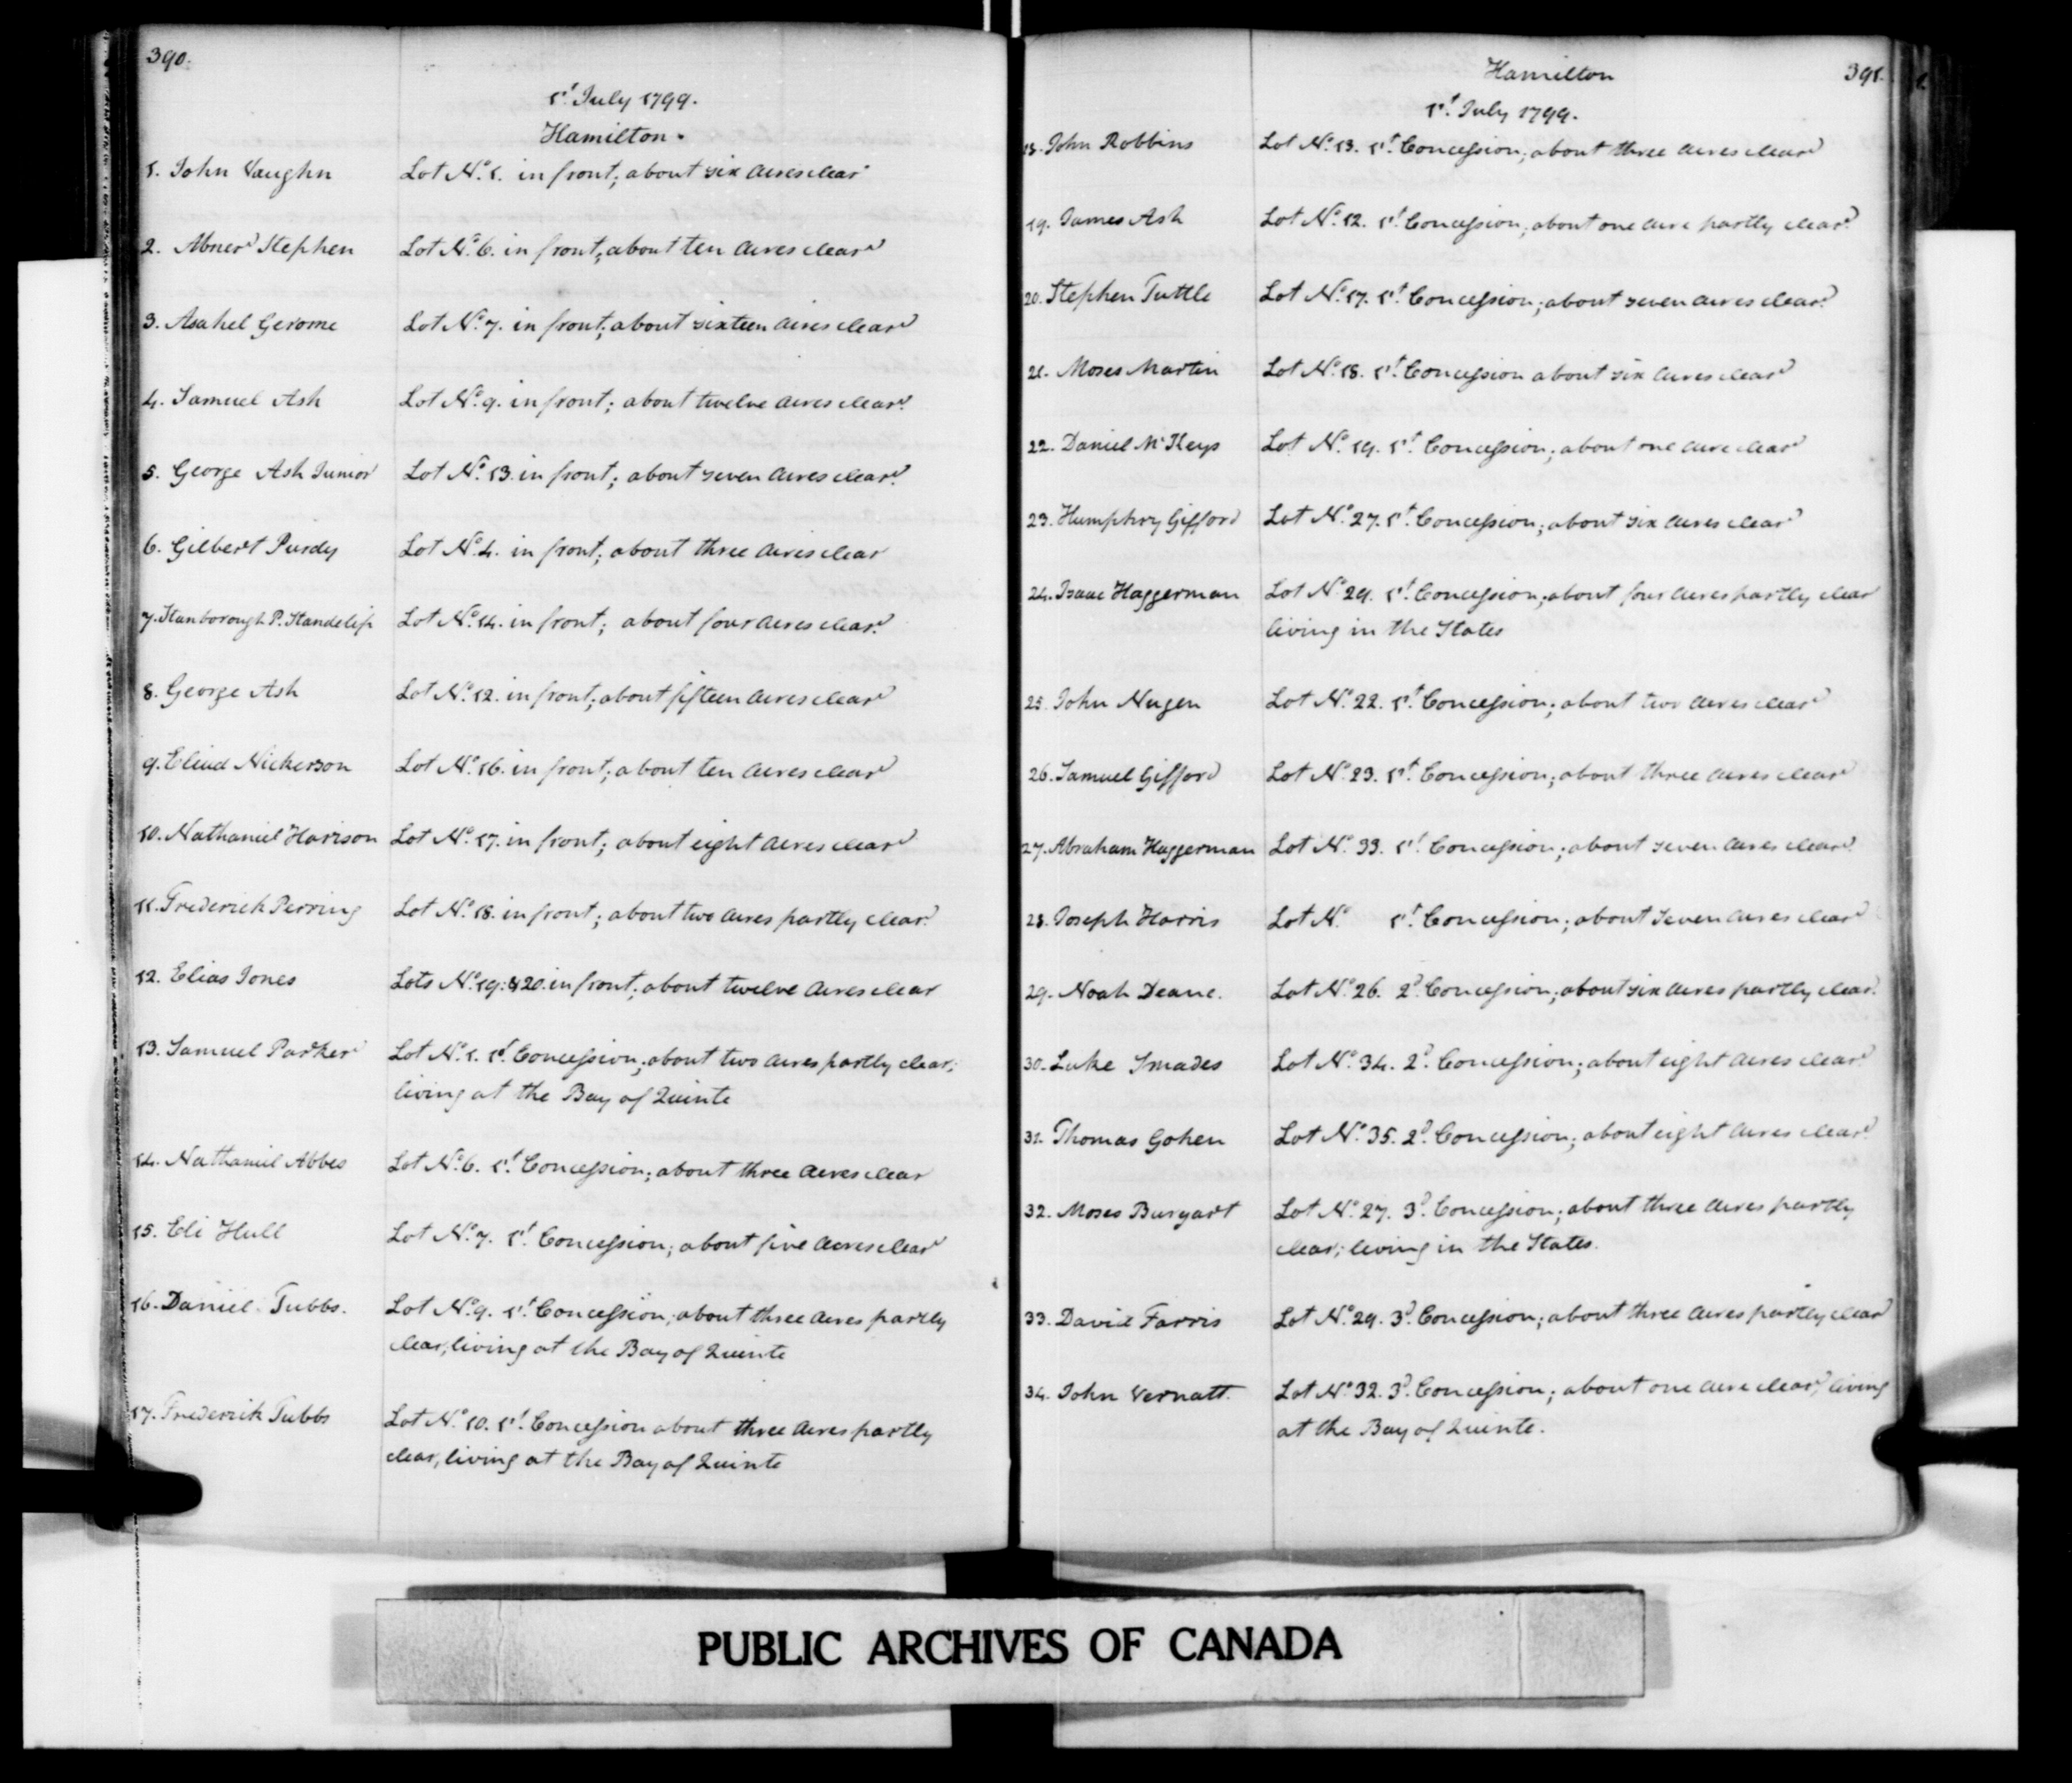 390.
1st July 1799.
Hamilton.
1. John Vaughn Lot No. 1. in front; about six acres clear
2. Abner Stephen Lot No. 6. in front; about ten acres clear
3. Asahel Gerome Lot No. 7. in front; about sixteen acres clear
4. Samuel Ash Lot No. 9. in front; about twelve acres clear.
5. George Ash Junior Lot No. 13. in front; about seven acres clear.
6. Gilbert Purdy Lot No. 4. in front; about three acres clear
7. Stanborough P. Standelif Lot No. 14. in front; about four acres clear.
8. George Ash Lot No. 12. in front; about fifteen acres clear
9. Eliud Nickerson Lot No. 16. in front; about ten acres clear
10. Nathaniel Harison Lot No. 17. in front; about eight acres clear
11. Frederick Perring Lot No. 18. in front; about two acres partly clear.
12. Elias Jones Lots No. 19. & 20. in front; about twelve acres clear
13. Samuel Parker Lot No. 1. 1st Concession; about two acres partly clear;
living at the Bay of Quinte
14. Nathaniel Abbes Lot No. 6. 1st Concession; about three acres clear
15. Eli Hull Lot No. 7. 1st Concession; about five acres clear
16. Daniel Tubbs. Lot No. 9. 1st Concession; about three acres partly
clear; living at the Bay of Quinte
17. Frederick Tubbs Lot No. 10. 1st Concession about three acres partly
clear, living at the Bay of Quinte
Hamilton 391.
1st July 1799.
18. John Robbins Lot No. 13. 1st Concession; about three acres clear
19. James Ash Lot No. 12. 1st Concession; about one acre partly clear.
20. Stephen Tuttle Lot No. 17. 1st Concession; about seven acres clear.
21. Moses Martin Lot No. 18. 1st Concession about six acres clear
22. Daniel McKeys Lot No. 19. 1st Concession; about one acre clear
23. Humphry Gifford Lot No. 27. 1st Concession; about six acres clear
24. Isaac Haggerman Lot No. 29. 1st Concession; about four acres partly clear
living in the States
25. John Nugen Lot No. 22. 1st Concession; about two acres clear
26. Samuel Gifford Lot No. 23. 1st Concession; about three acres clear
27. Abraham Haggerman Lot No. 33. 1st Concession; about seven acres clear.
28. Joseph Harris Lot No. 1st Concession; about seven acres clear
29. Noah Deane. Lot No. 26. 2d Concession; about six acres partly clear.
30. Luke Smades Lot No. 34. 2d Concession; about eight acres clear.
31. Thomas Gohen Lot No. 35. 2d Concession; about eight acres clear.
32. Moses Burgart Lot No. 27. 3d Concession; about three acres partly
clear; living in the States.
33. David Farris Lot No. 29. 3d Concession; about three acres partly clear
34. John Vernatt. Lot No. 32. 3d Concession; about one acre clear, living
at the Bay of Quinte.
PUBLIC ARCHIVES OF CANADA